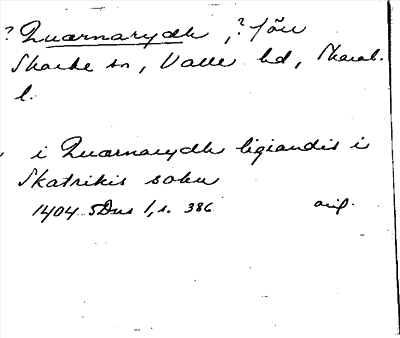 ? Quarnarydh, ? försv.
Skarke sn, Valle hd, Skarab.
l.
i Quarnarydh ligiandis i
Skatrikis sokn
1404 SDns 1, s. 386 orig.